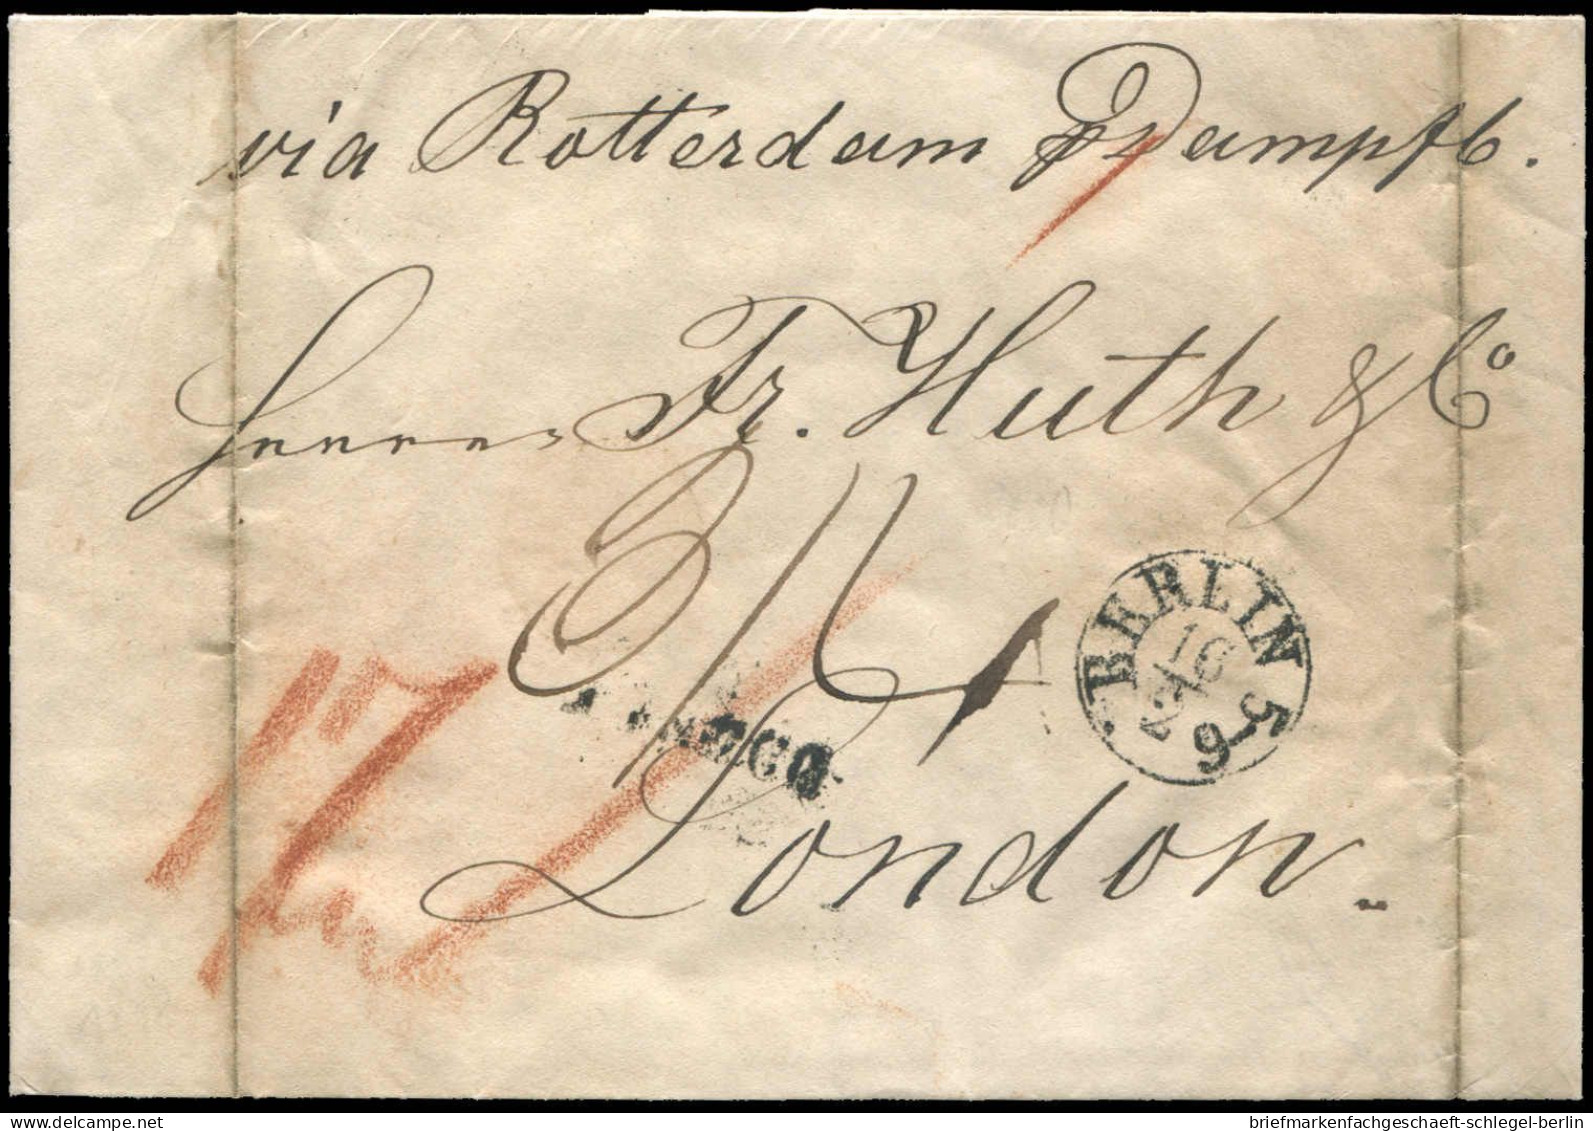 via Rotterdam p Dampfb.
Herren Fr. Huth & Co
BERLIN
16
2
5-9
FRANCO
London.
briefmarkenfachgeschaeft-schlegel-berlin